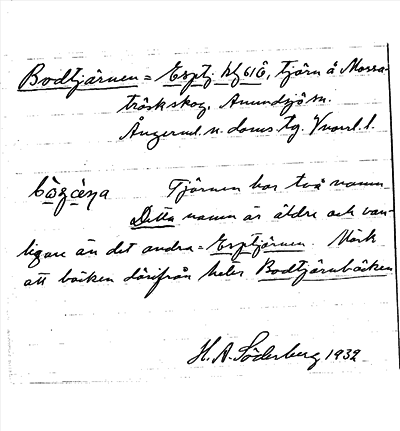 Bodtjärnen = Esptj. kf 61Ö, tjärn å Mossa-
träsk skog, Anundsjö sn.
Ångerml. n. doms. tg. Vnorrl. l.
Tjärnen har två namn
Detta namn är äldre och van-
ligare än det andra = Esptjärnen. Märk
att bäcken därifrån heter Bodtjärnbäcken
H. A. Söderberg 1932